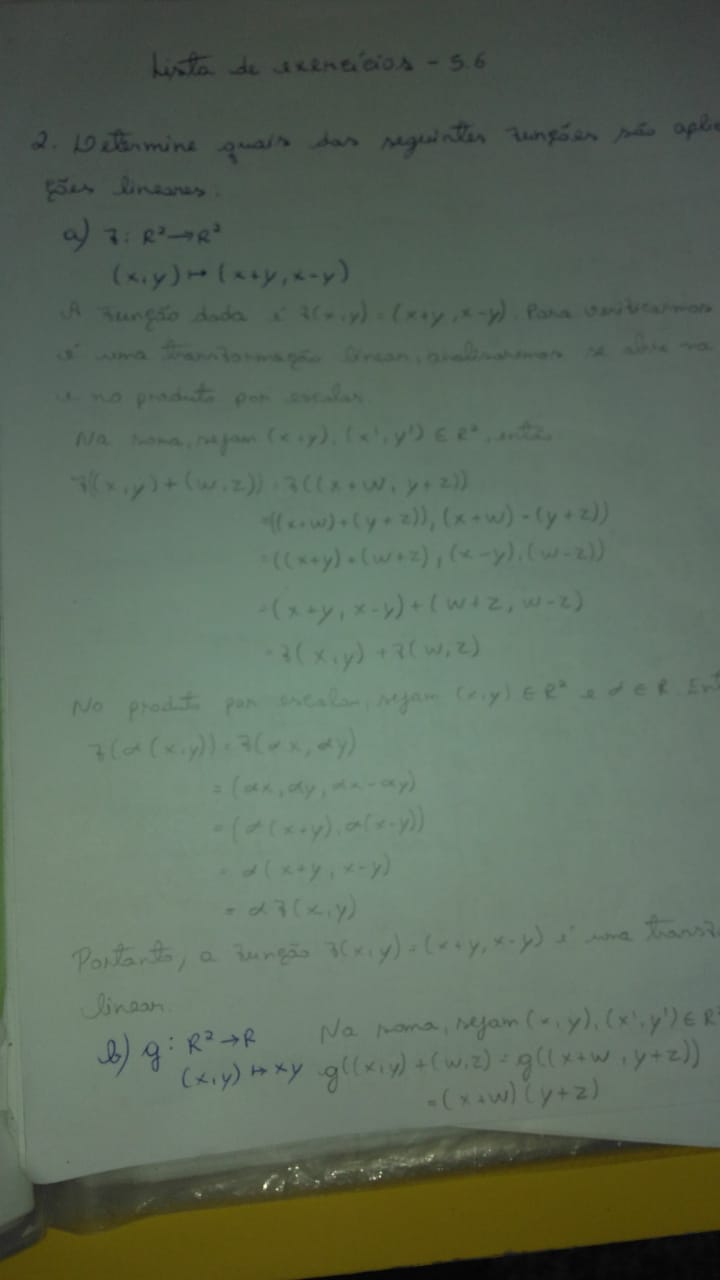 Lista de exercícios - 5.6
2. Determine quais das seguintes funções são aplica
ções lineares.
a) f: R² → R²
(x,y) ↦ (x+y, x-y)
A função dada é f(x,y) = (x+y, x-y). Para verificarmos
é uma transformação linear, analisaremos se abre na
e no produto por escalar.
Na soma, sejam (x+y), (x',y') ∈ R², então
f((x,y)+(w,z)) = f((x+w, y+z))
=((x+w)+(y+z)), (x+w)-(y+z))
=((x+y)+(w+z), (x-y),(w-z))
=(x+y, x-y)+(w+z, w-z)
=f(x,y)+f(w,z)
No produto por escalar, sejam (x,y) ∈ R² e α ∈ R. Ent
f(α(x,y)) = f(αx, αy)
= (αx, αy, αx-αy)
= (α(x+y), α(x-y))
= α(x+y, x-y)
= αf(x,y)
Portanto, a função f(x,y)=(x+y, x-y) é uma transf
linear.
b) g: R² → R Na soma, sejam (x,y), (x',y') ∈ R²
(x,y) ↦ xy g((x,y)+(w,z) = g((x+w, y+z))
=(x+w)(y+z)